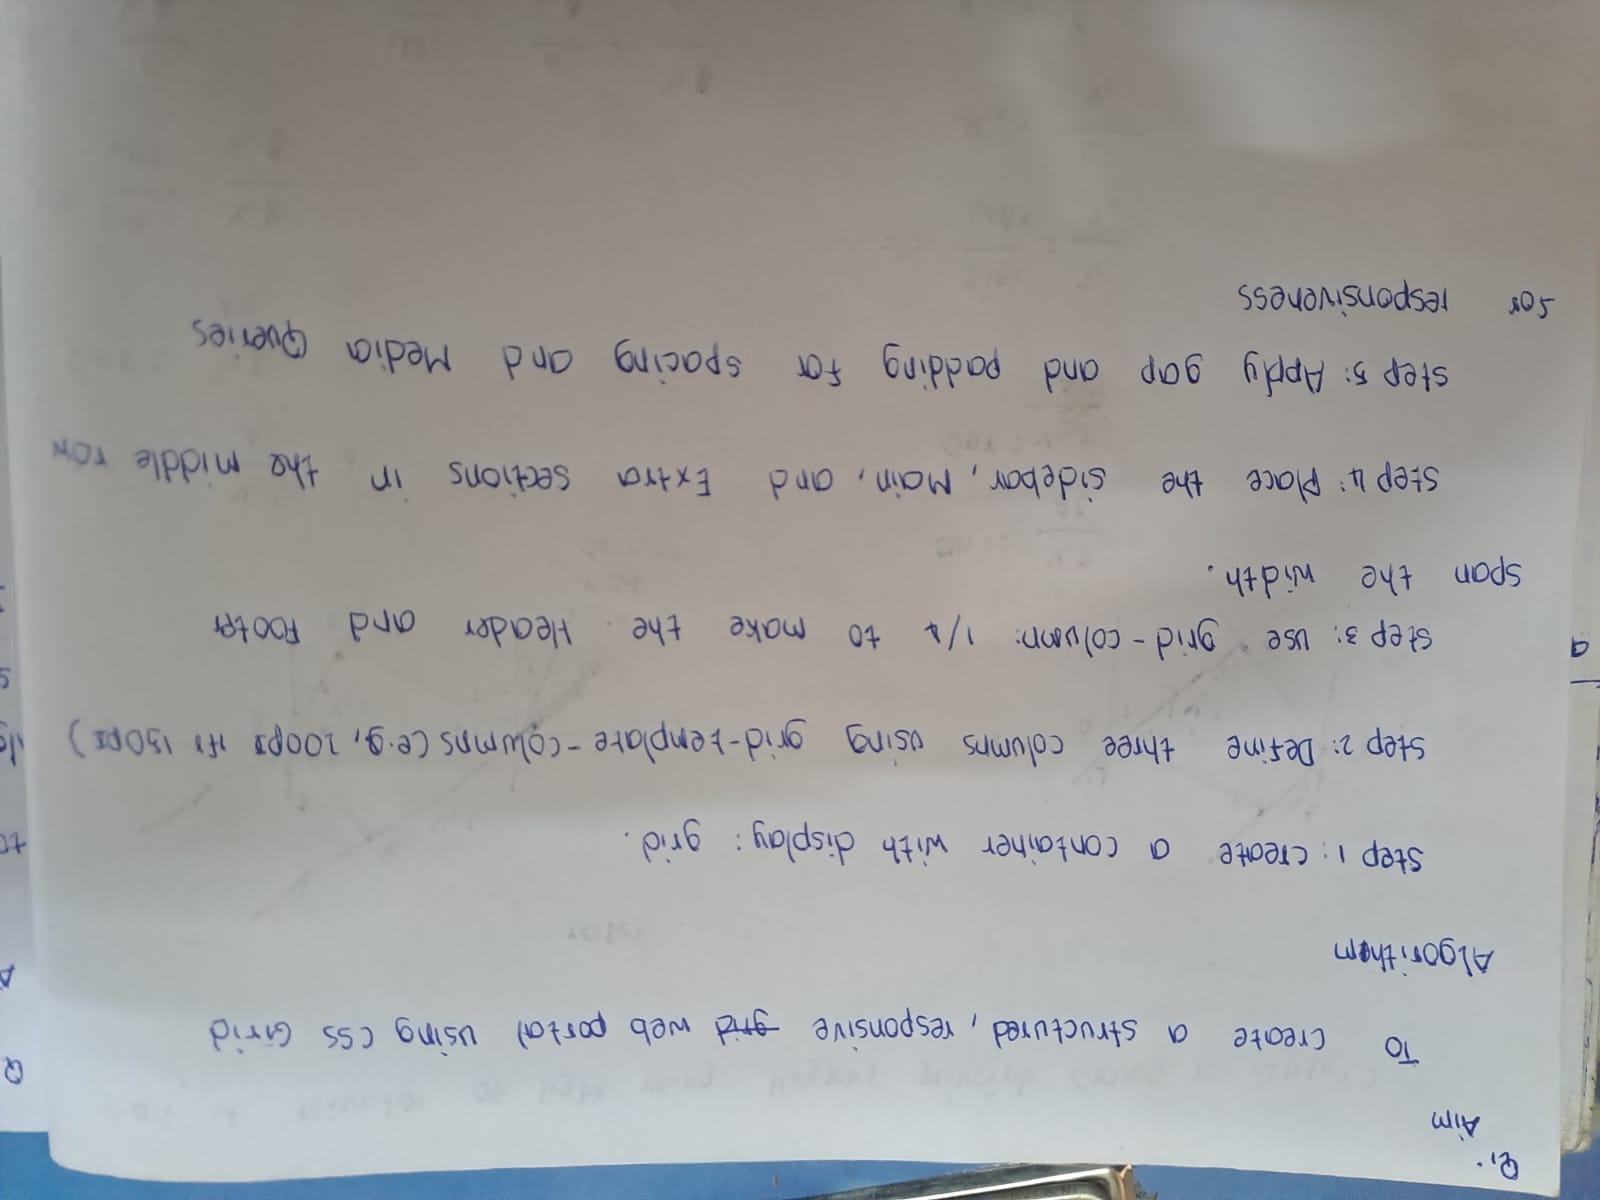 Q1.
Aim
To create a structured, responsive grid web portal using CSS Grid
Algorithem
Step 1: create a container with display: grid.
Step 2: Define three columns using grid-template-columns (e.g, 200px 1fr 150px)
Step 3: use grid-column: 1/4 to make the Header and Footer
span the width.
Step 4: Place the sidebar, Main, and Extra sections in the middle row
Step 5: Apply gap and padding for spacing and Media Queries
for responsiveness